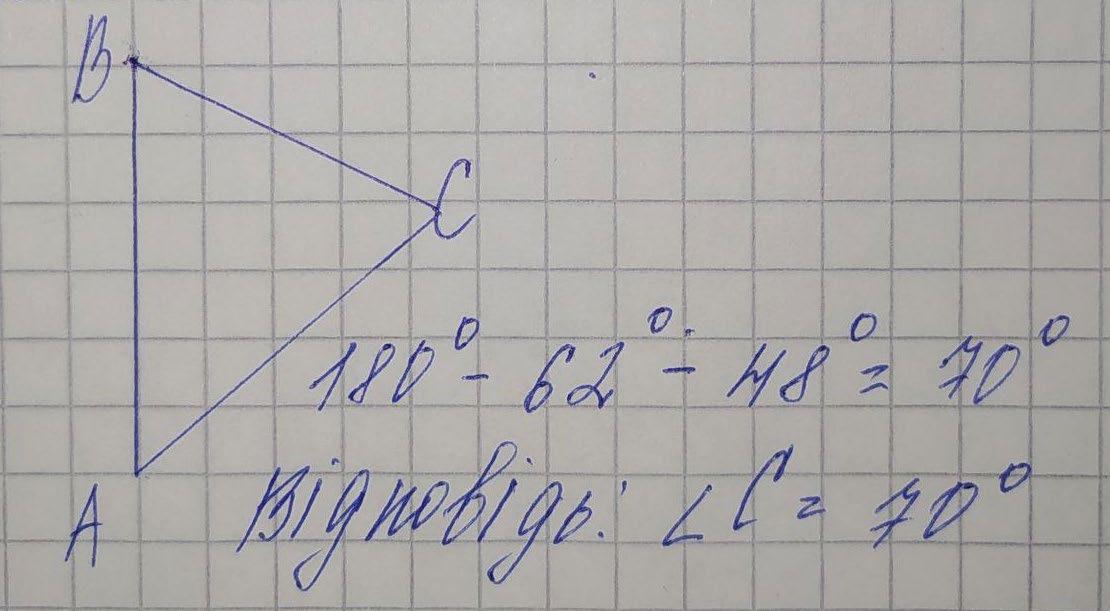 B
C
180° - 62° - 48° = 70°
A
Відповідь: ∠C = 70°